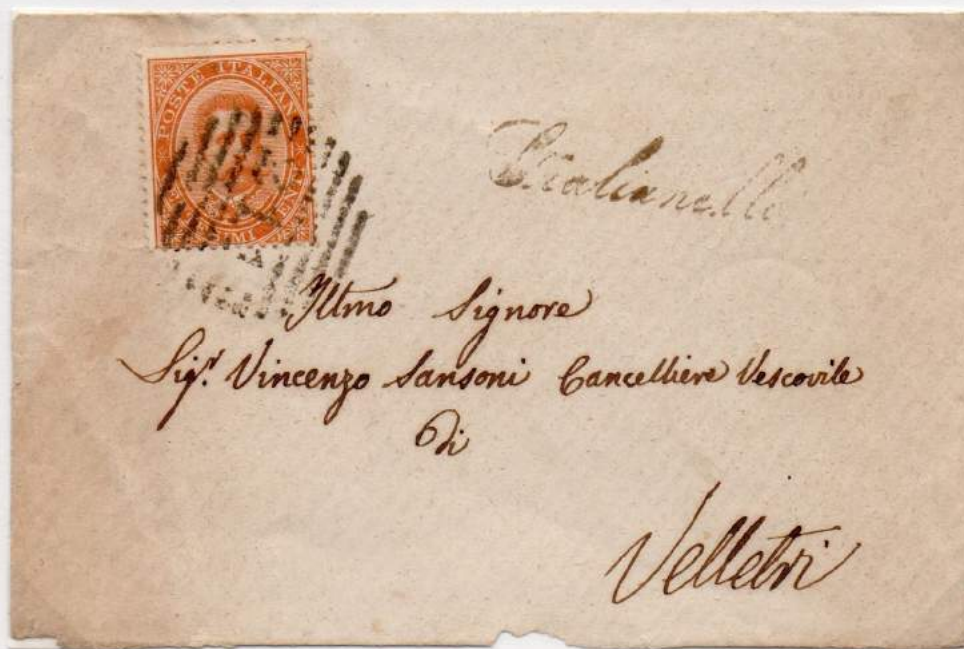 POSTE ITALIANE
Illmo Signore
Sigr. Vincenzo Sansoni Cancelliere Vescovile
di
Velletri